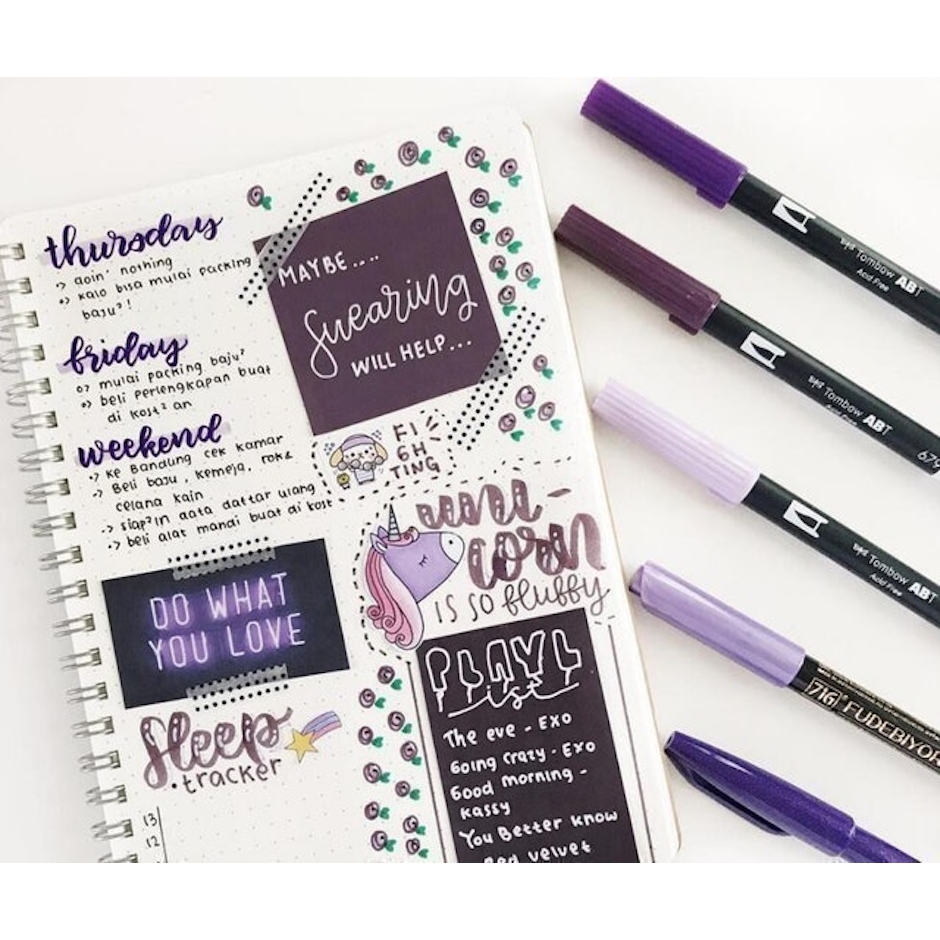 thursday
-> doin' nothing
-> kalo bisa mulai packing
baju²!
friday
-> mulai packing baju²
-> beli perlengkapan buat
di kost²an
weekend
-> ke Bandung cek kamar
-> Beli baju, kemeja, rok&
celana kain
-> siap²in data daftar ulang
-> beli alat mandi buat di kost
DO WHAT
YOU LOVE
sleep
tracker
13
12
MAYBE....
Swearing
WILL HELP...
FI
GH
TING
uni-
corn
IS SO fluffy
PLAYL
ist
The eve - EXO
Going crazy - EXO
Good morning -
kassy
You Better know
Red velvet
Tombow ABT
Acid Free
Tombow ABT
Acid Free
679
Tombow ABT
Acid Free
716 FUDEBIYOR